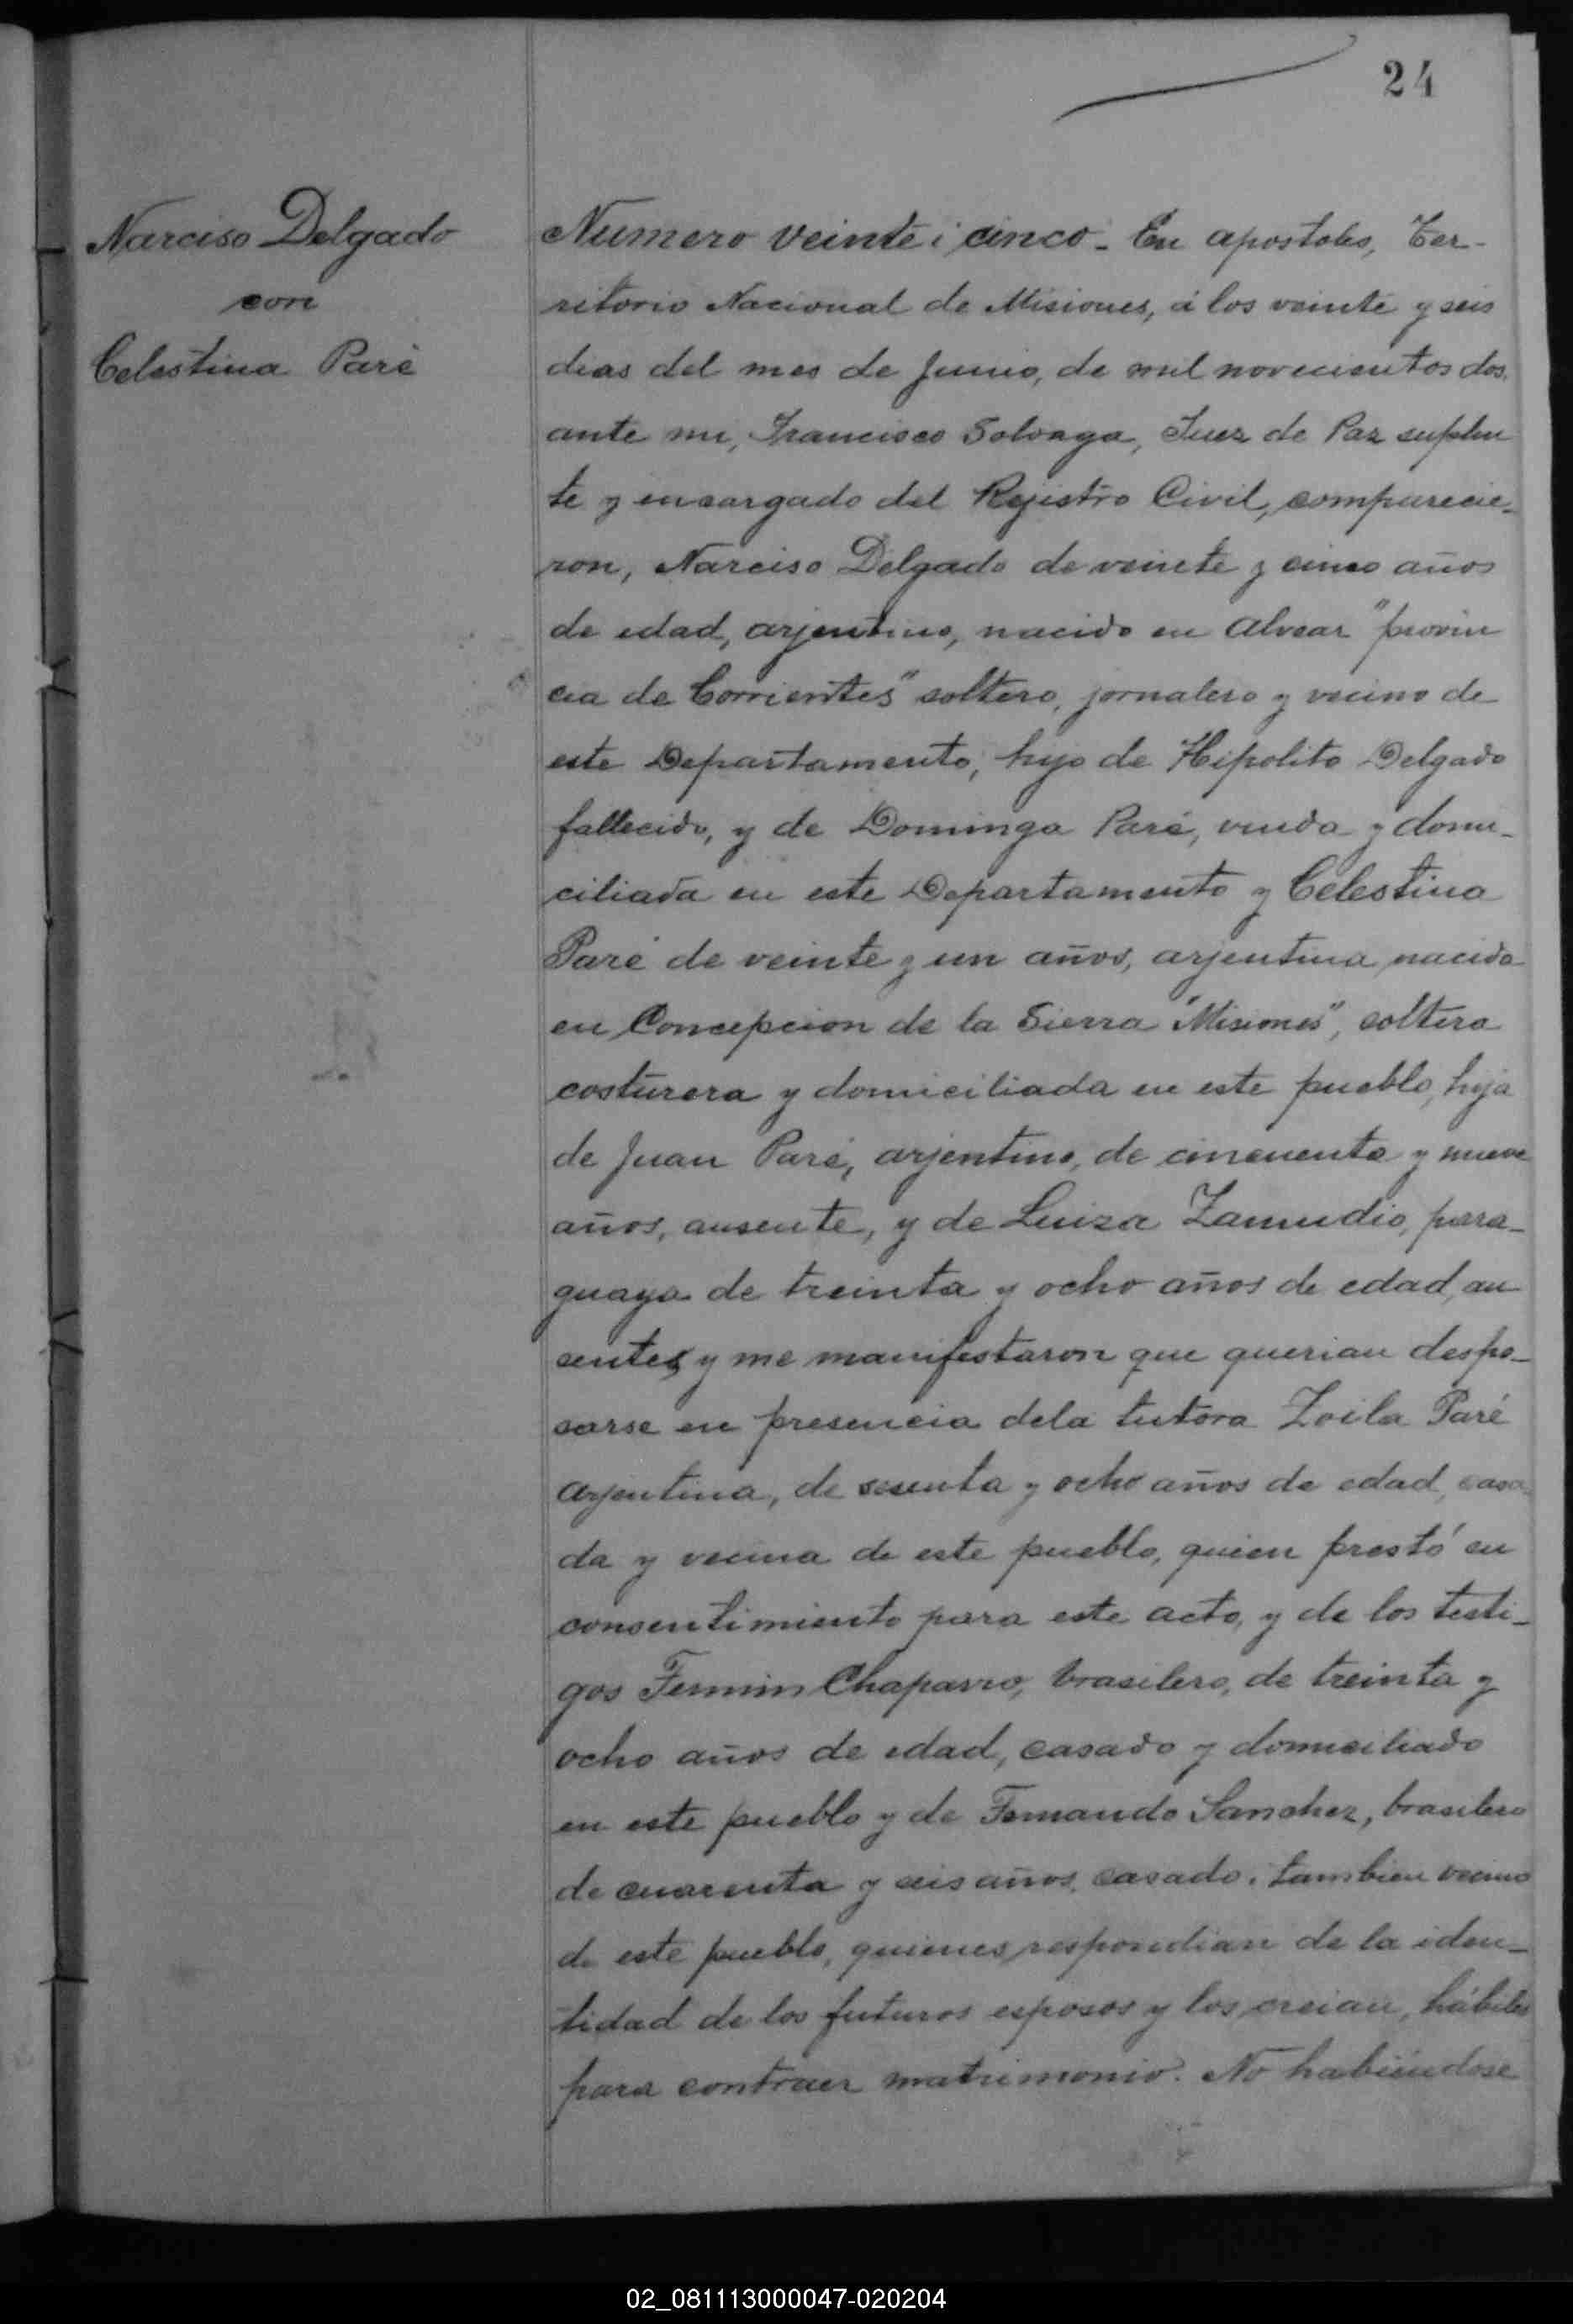 24
Narciso Delgado
con
Celestina Paré
Numero veinte i cinco - En apostoles, Ter-
ritorio Nacional de Misiones, á los veinte y seis
dias del mes de Junio, de mil novecientos dos,
ante mi, Francisco Solvaga, Juez de Paz suplen
te y encargado del Rejistro Civil, comparecie-
ron, Narciso Delgado de veinte y cinco años
de edad, arjentino, nacido en Alvear "provin
cia de Corrientes" soltero, jornalero y vecino de
este Departamento, hijo de Hipolito Delgado
fallecido, y de Dominga Paré, viuda y domi-
ciliada en este Departamento y Celestina
Paré de veinte y un años, arjentina nacida
en Concepcion de la Sierra "Misiones", soltera
costurera y domiciliada en este pueblo, hija
de Juan Paré, arjentino, de cincuenta y nueve
años, ausente, y de Luiza Zamudio, para-
guaya de treinta y ocho años de edad, au
sentes y me manifestaron que querian despo-
sarse en presencia dela tutora Zoila Paré
arjentina, de sesenta y ocho años de edad, casa
da y vecina de este pueblo, quien prestó su
consentimiento para este acto, y de los testi-
gos Fermin Chaparro, brasilero, de treinta y
ocho años de edad, casado y domiciliado
en este pueblo y de Fernando Sanchez, brasilero
de cuarenta y seis años, casado, tambien vecino
de este pueblo, quienes respondian de la iden-
tidad de los futuros esposos y los creian, hábiles
para contraer matrimonio. No habiéndose
02_081113000047-020204